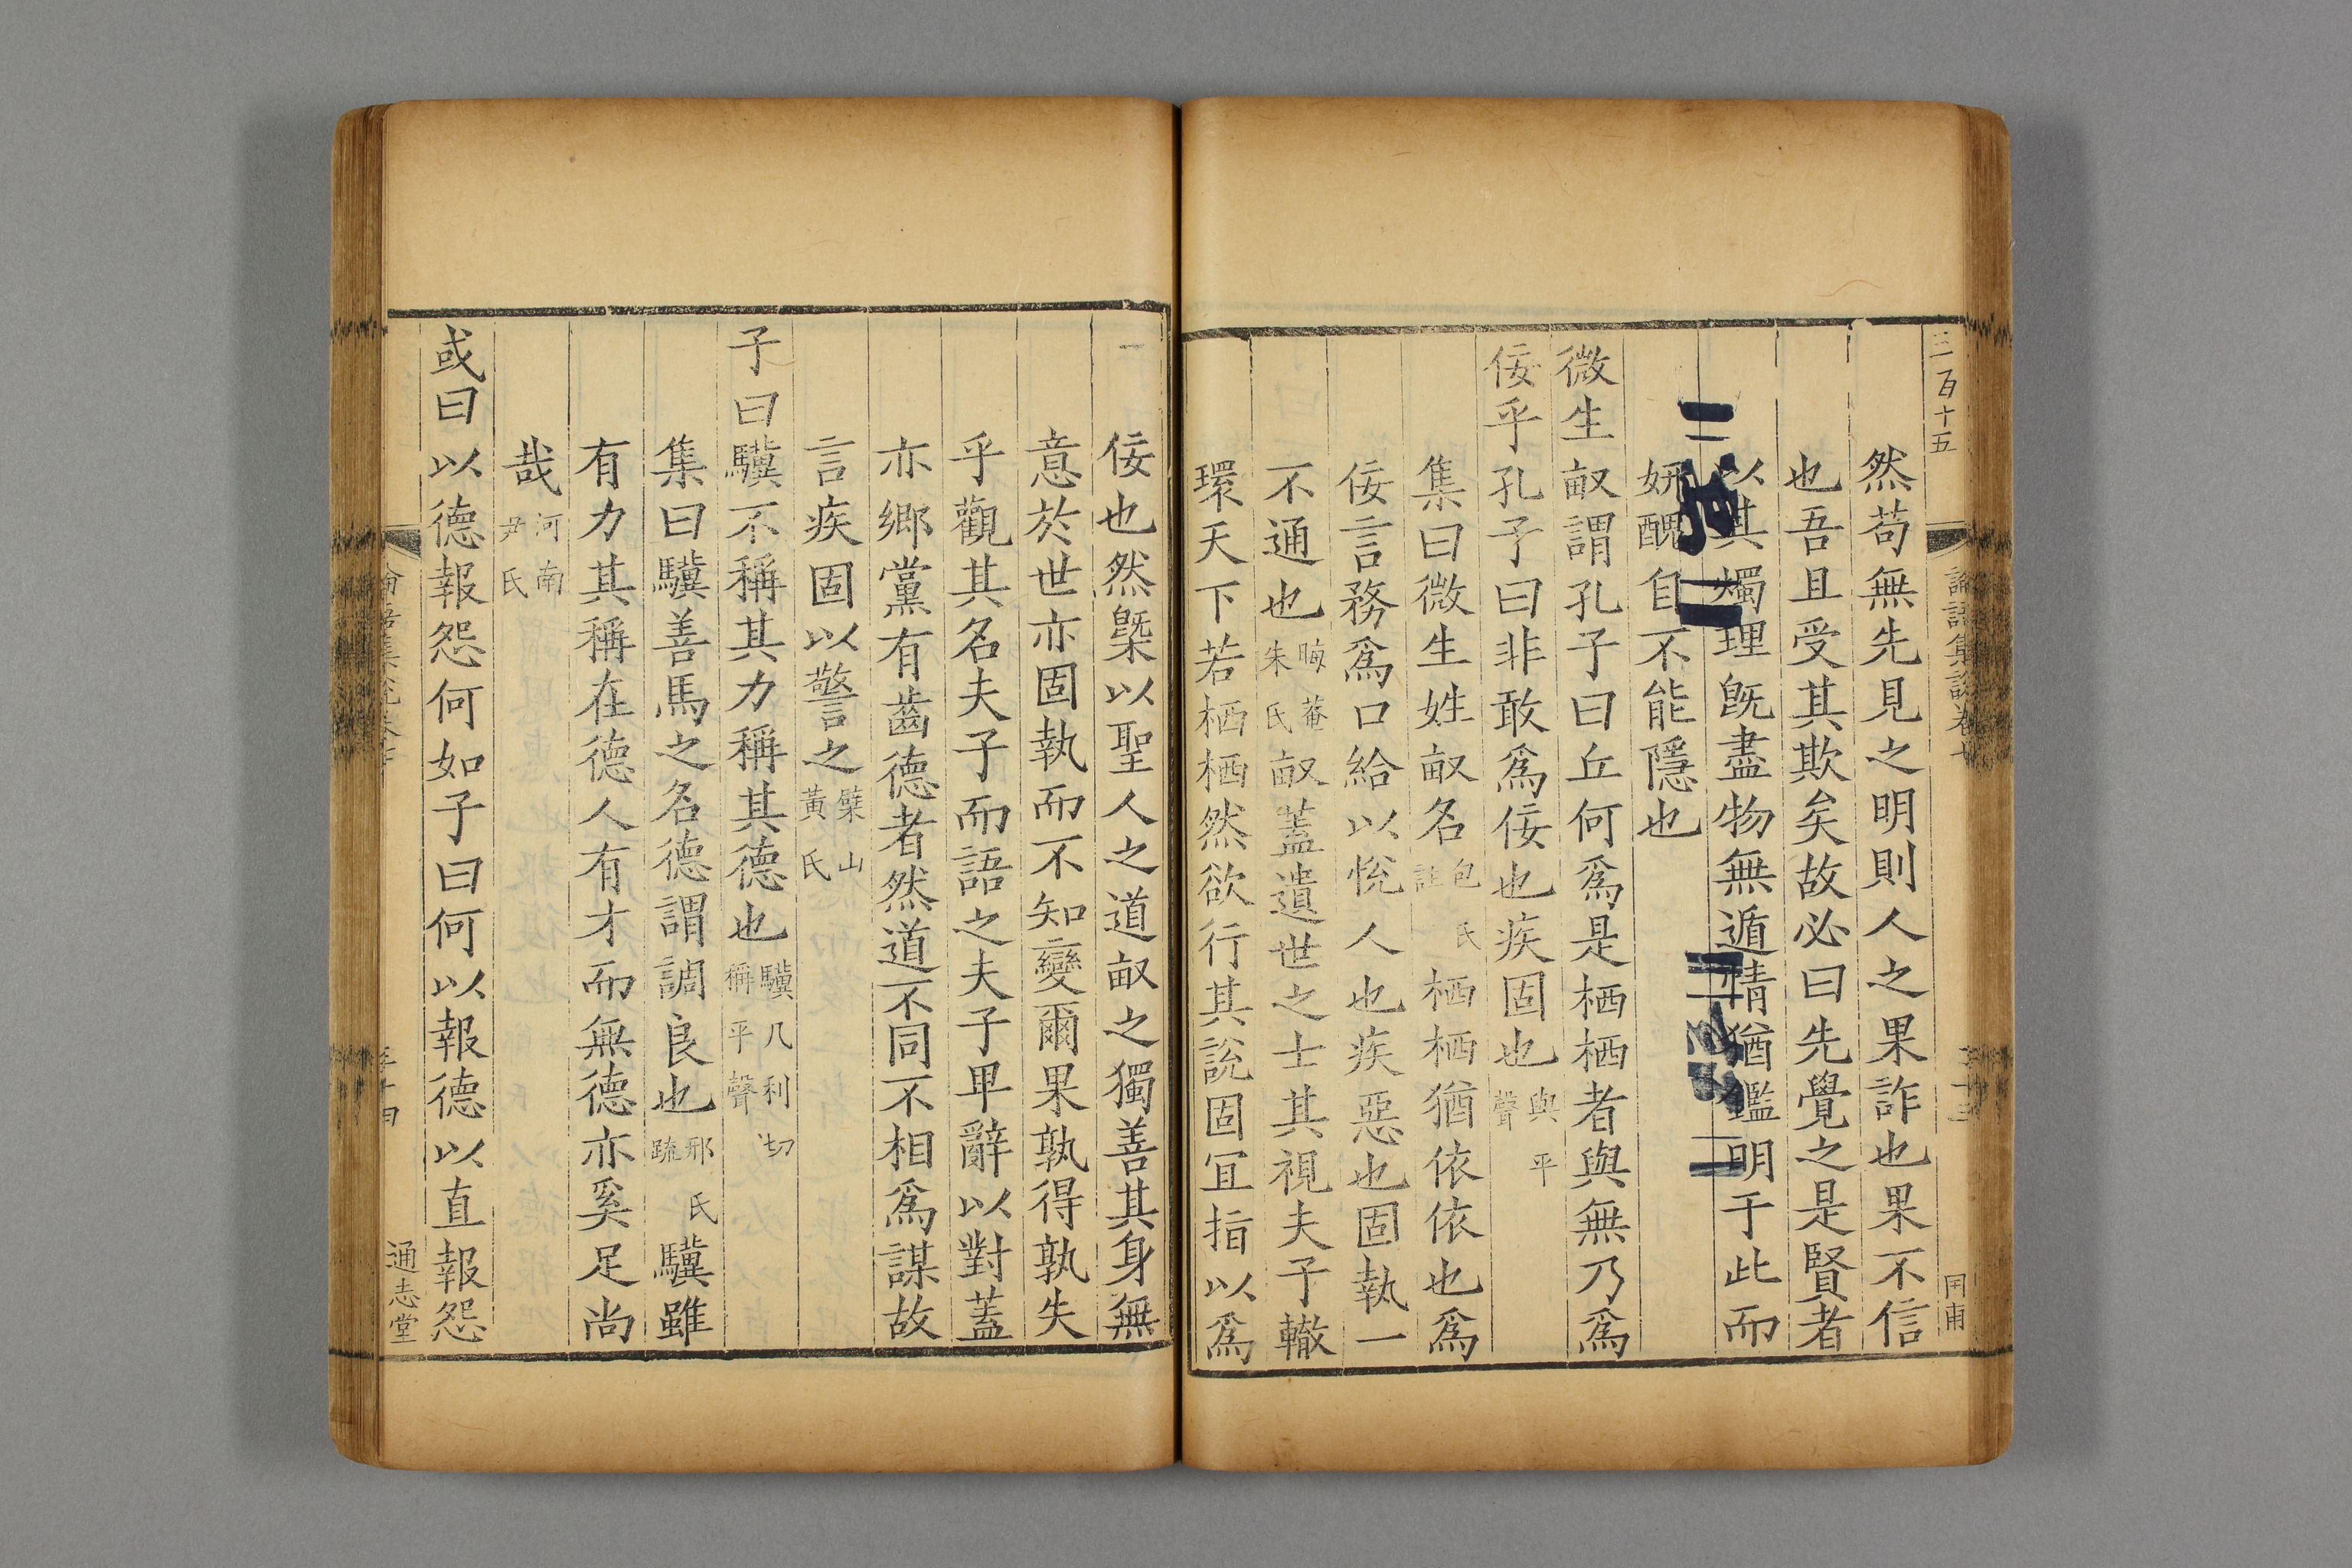 三百十五
論語集說卷七
然苟無先見之明則人之果詐也果不信
也吾且受其欺矣故必曰先覺之是賢者
以其燭理旣盡物無遁情猶鑑明于此而
妍醜自不能隱也
微生畝謂孔子曰丘何爲是栖栖者與無乃爲
佞乎孔子曰非敢爲佞也疾固也與平聲
集曰微生姓畝名包氏註栖栖猶依依也爲
佞言務爲口給以悅人也疾惡也固執一
不通也晦菴朱氏畝蓋遺世之士其視夫子轍
環天下若栖栖然欲行其說固宜指以爲
佞也然槩以聖人之道畝之獨善其身無
意於世亦固執而不知變爾果孰得孰失
乎觀其名夫子而語之夫子卑辭以對蓋
亦鄉黨有齒德者然道不同不相爲謀故
言疾固以警之檗山黃氏
子曰驥不稱其力稱其德也驥几利切稱平聲
集曰驥善馬之名德謂調良也邢氏疏驥雖
有力其稱在德人有才而無德亦奚足尚
哉河南尹氏
或曰以德報怨何如子曰何以報德以直報怨
通志堂